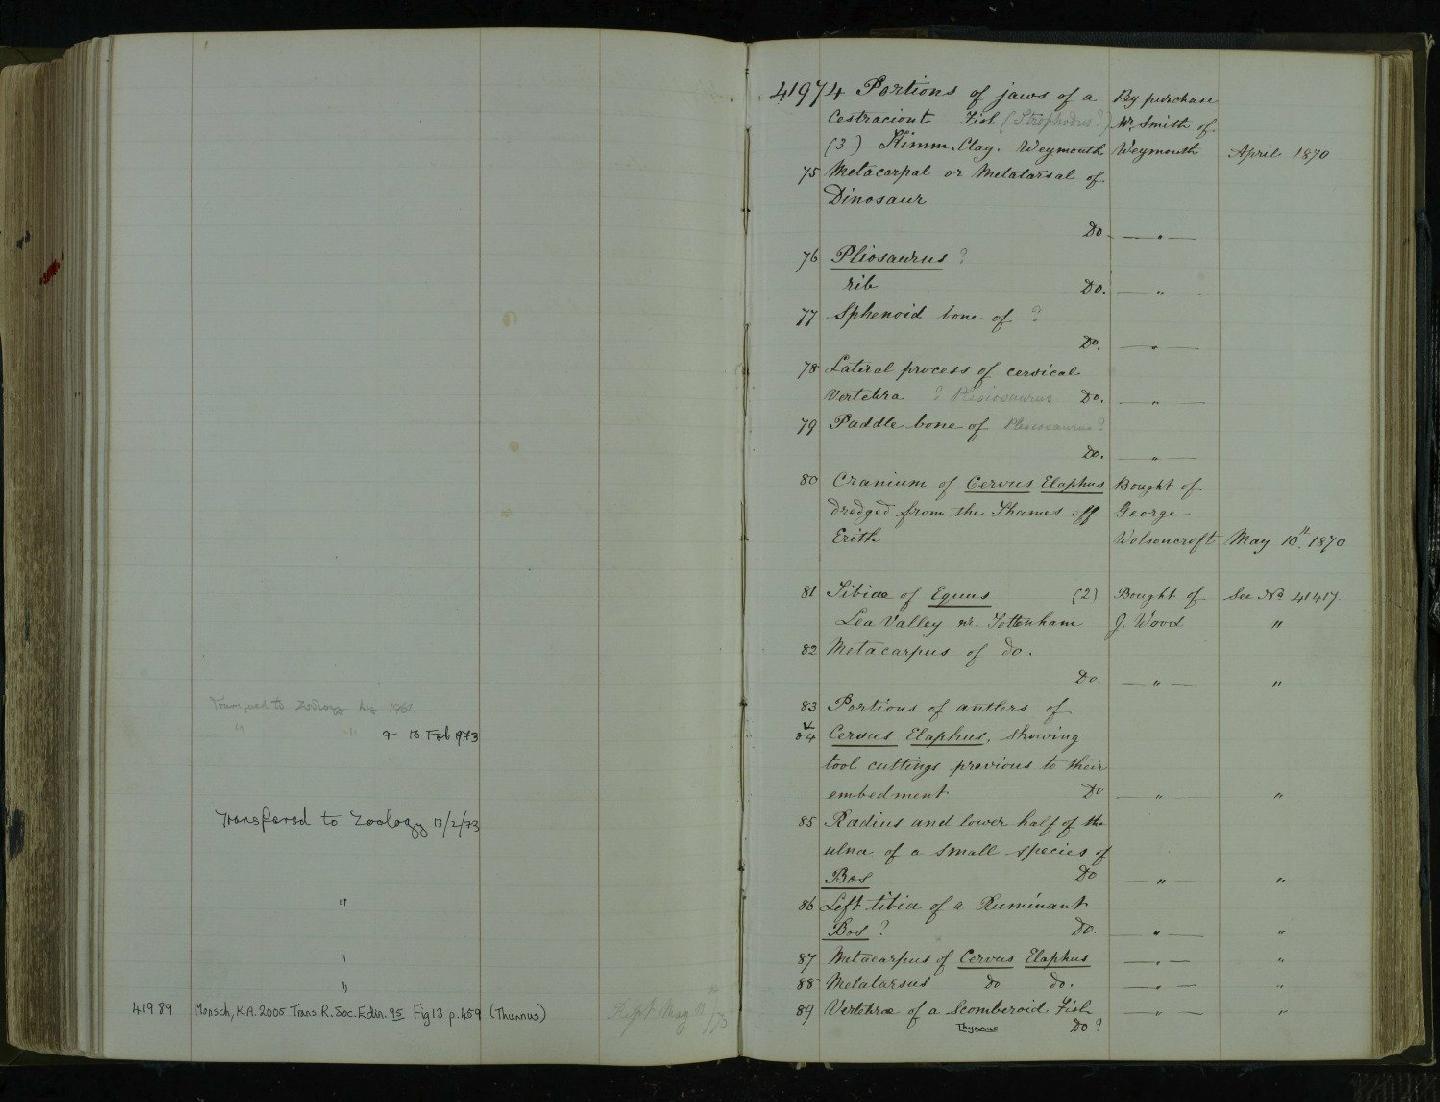 Transferred to Zoology
" " 9- 13 Feb 1973
Transfered to Zoology 13/2/73
"
"
"
41989 Monsch, K.A. 2005 Trans R. Soc. Edin. 95 Fig 13 p. 459 (Thunnus)
Rept May
41974 Portions of jaws of a By purchase
Cestraciont Fish (Strophodus?) Mr. Smith of
(3) Kimm. Clay. Weymouth Weymouth April 1870
75 Metacarpal or Metatarsal of
Dinosaur
Do — " —
76 Pliosaurus ?
rib Do. — " —
77 Sphenoid bone of ?
Do. — " —
78 Lateral process of cervical
Vertebra ? Plesiosaurus Do. — " —
79 Paddle bone of Pleiosaurus?
Do. — " —
80 Cranium of Cervus Elaphus Bought of
dredged from the Thames off George
Erith Wolsoncroft May 10th. 1870
81 Tibiae of Equus (2) Bought of See No 41417.
Lea Valley nr. Tottenham J. Wood "
82 Metacarpus of do.
Do — " — "
83 Portions of antlers of
& 84 Cervus Elaphus, showing
tool cuttings previous to their
embedment Do — " — "
85 Radius and lower half of the
ulna of a small species of
Bos Do — " — "
86 Left tibia of a Ruminant
Bos ? Do. — " — "
87 Metacarpus of Cervus Elaphus — " — "
88 Metatarsus do do. — " — "
89 Vertebrae of a Scomberoid Fish — " — "
Thynnus Do ?